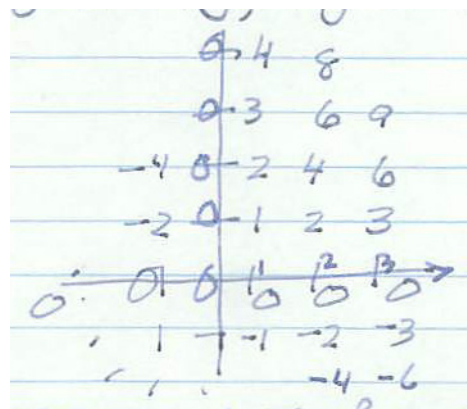 0 4 8
0 3 6 9
-4 0 2 4 6
-2 0 1 2 3
1 2 3
0 0 0 0 0 0
1 -1 -2 -3
-4 -6